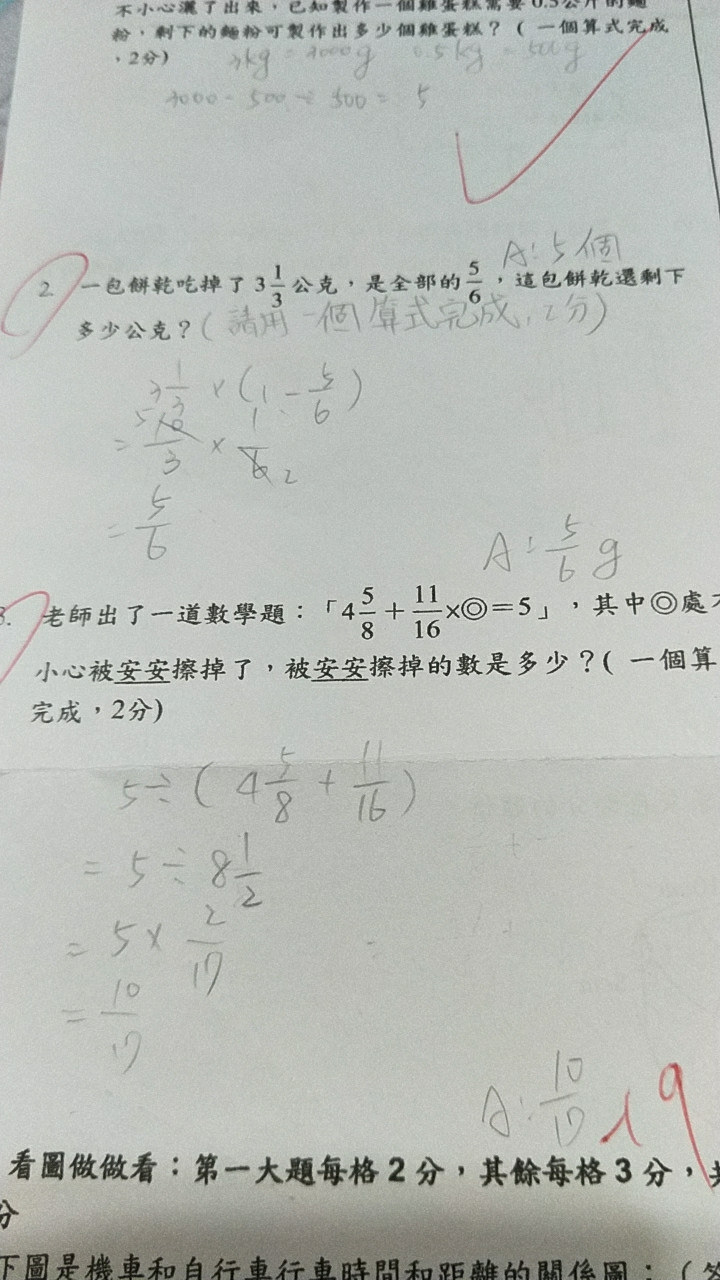 不小心灑了出來，已知製作一個雞蛋糕需要0.5公斤的麵
粉，剩下的麵粉可製作出多少個雞蛋糕？( 一個算式完成
，2分)
3kg = 3000g 0.5kg = 500g
3000 - 500 ÷ 500 = 5
A：5個
2. 一包餅乾吃掉了 3 1/3 公克，是全部的 5/6，這包餅乾還剩下
多少公克？(請用一個算式完成，2分)
3 1/3 × (1 - 5/6)
= 10/3 × 1/6
5 2
= 5/6
A：5/6 g
3. 老師出了一道數學題：「4 5/8 + 11/16 × ◎ = 5」，其中◎處
小心被安安擦掉了，被安安擦掉的數是多少？( 一個算
完成，2分)
5 ÷ ( 4 5/8 + 11/16 )
= 5 ÷ 8 1/2
= 5 × 2/17
= 10/17
A：10/17
看圖做做看：第一大題每格 2 分，其餘每格 3 分，共
分
下圖是機車和自行車行車時間和距離的關係圖：（答